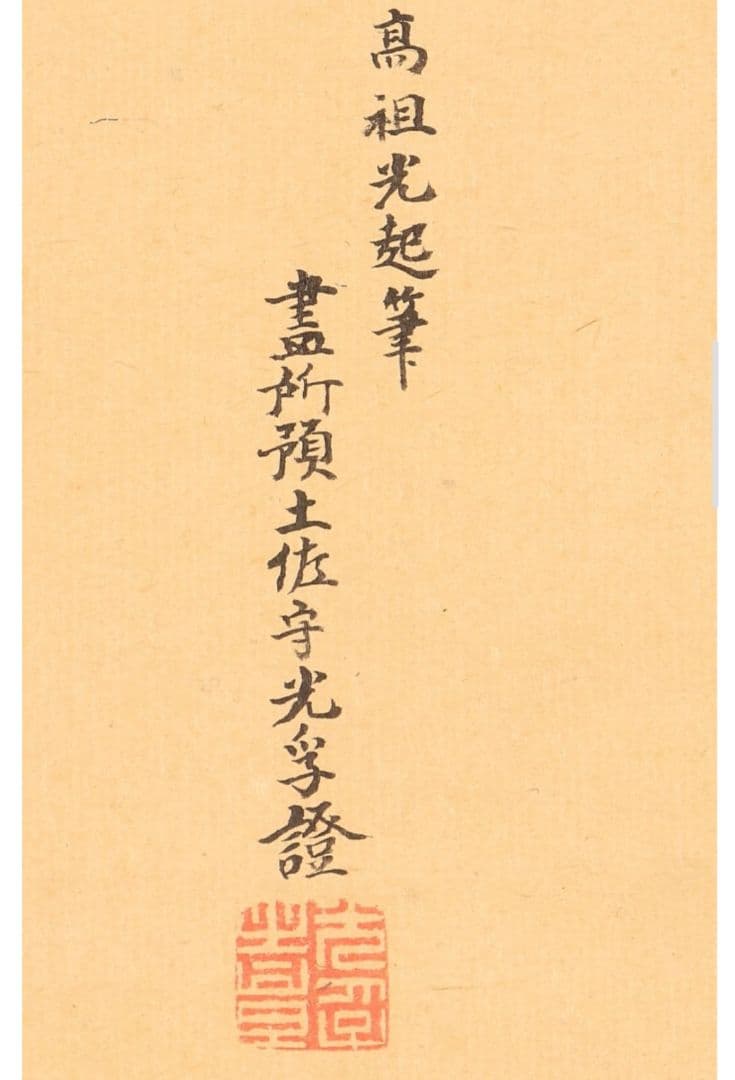 高祖光起筆
畫所預土佐守光孚證